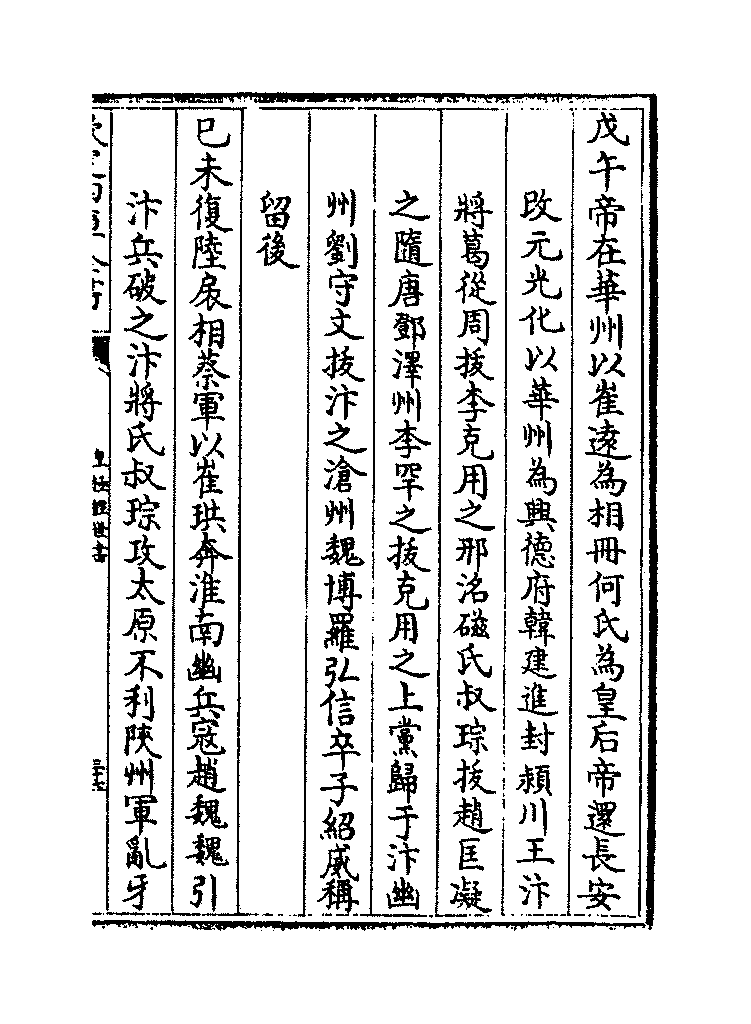 戊午帝在華州以崔逺為相冊何氏為皇后帝還長安
改元光化以華州為興德府韓建進封潁川王汴
將葛從周拔李克用之邢洺磁氏叔琮拔趙匡凝
之隨唐鄧澤州李罕之拔克用之上黨歸于汴幽
州劉守文拔汴之滄州魏博羅弘信卒子紹威稱
留後
己未復陸扆相蔡軍以崔珙奔淮南幽兵寇趙魏魏引
汴兵破之汴將氏叔琮攻太原不利陜州軍亂牙
皇極經世書